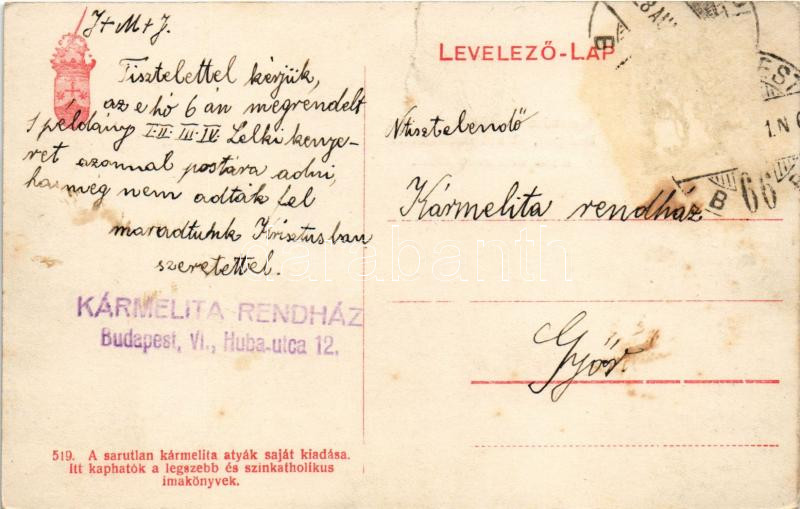 J+M+J.
Tisztelettel kérjük,
az e hó 6 án megrendelt
1 példány I. II. III. IV. Lelki kenye-
ret azonnal postára adni,
ha még nem adták fel
maradtunk Krisztusban
szeretettel.
KÁRMELITA RENDHÁZ
Budapest, VI., Huba-utca 12.
519. A sarutlan kármelita atyák saját kiadása.
Itt kaphatók a legszebb és színkatholikus
imakönyvek.
LEVELEZŐ-LAP
Ntisztelendő
Kármelita rendház
Győr.
B
EST
B 66
darabanth